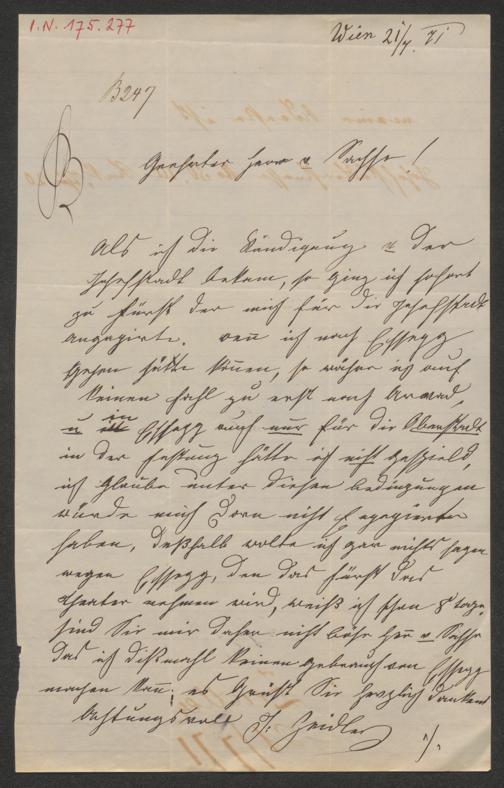 I.N. 175.277
Wien 21/7. 71
B247
Geehrter Herr v Sachse!
Als ich die Kündigung v der
Josefstadt bekam, so ging ich sofort
zu Fürst der mich für die Josefstadt
engagirte. wenn ich nach Essegg
gehen hätte können, so währe ich auf
keinen Fahl zu erst nach Arad,
u in Essegg auch nur für die Oberstadt
in der Festung hätte ich nicht gespield,
ich glaube unter diesen bedingungen
würde mich Dorn nicht engagiren
haben, deßhalb wolte ich gar nichts sagen
wegen Essegg, den das Fürst das
Theater nehmen wird, weiß ich schon 8 tage.
sind Sie mir daher nicht böse Herr v Sachse
das ich dißmahl keinen gebrauch von Essegg
machen kan; es Grüßt Sie herzlich dankend
Achtungsvoll J. Zeidler
./.